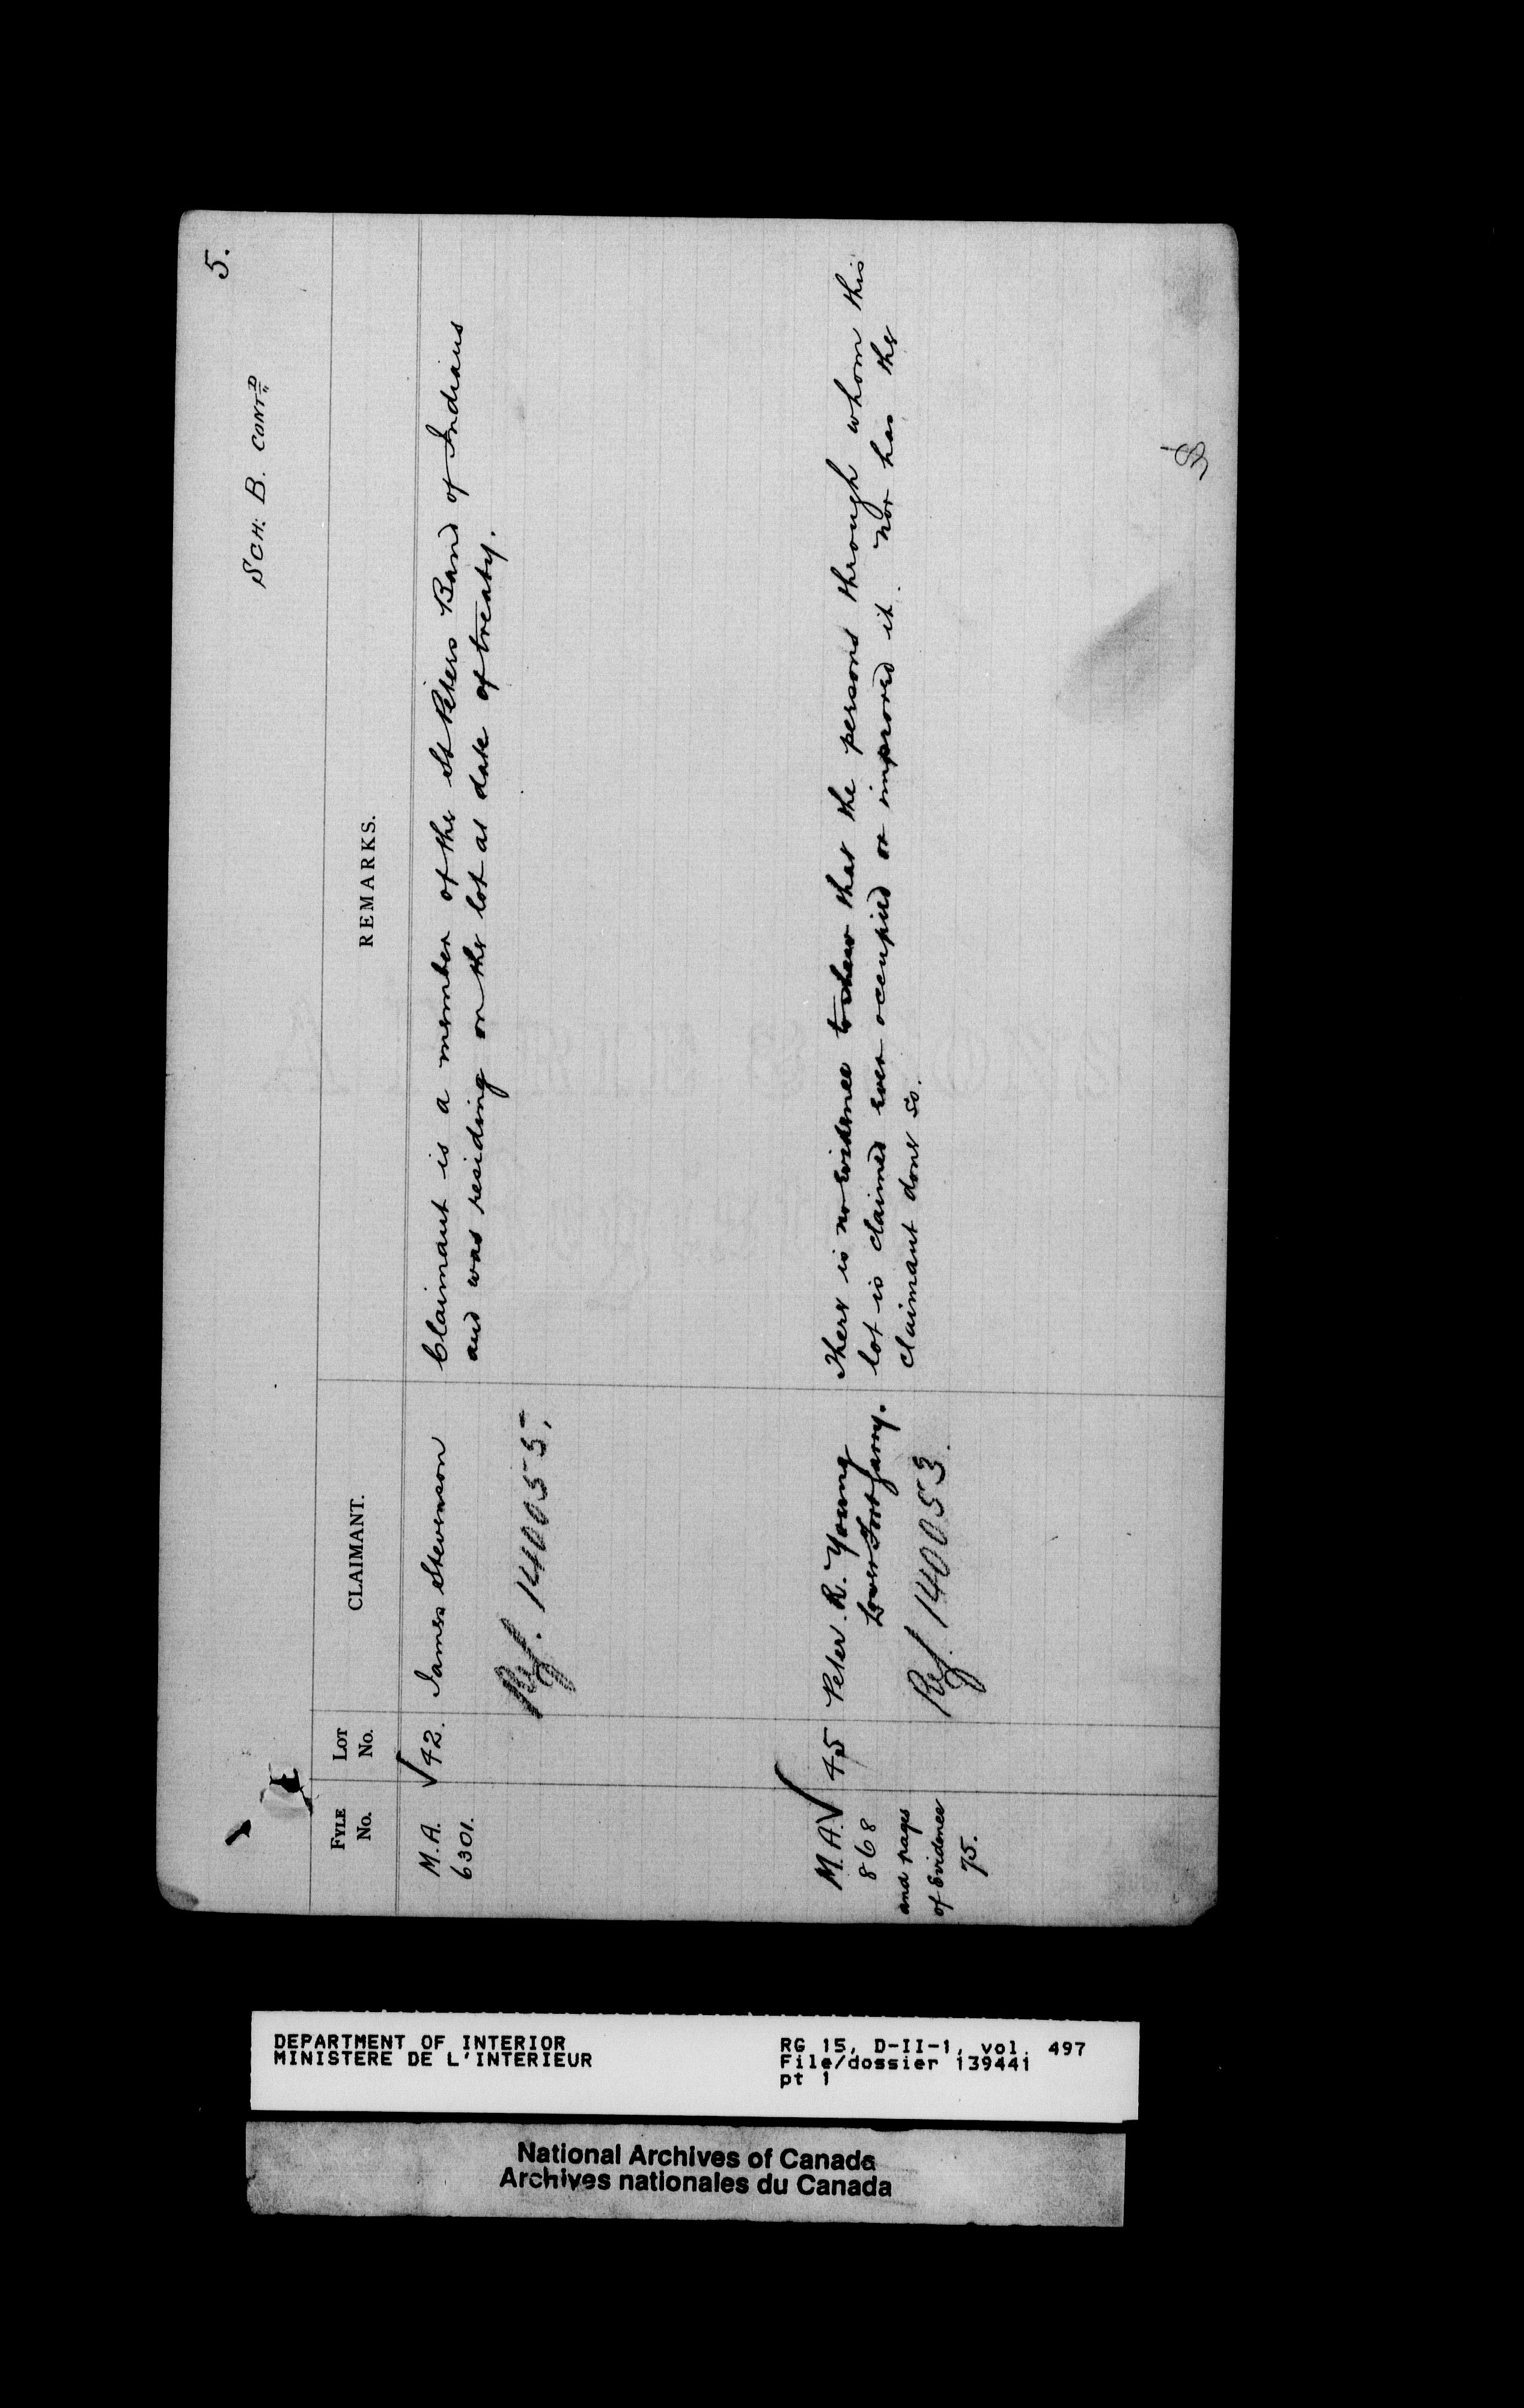 5.
SCH: B. CONT.D
FYLE No.
LOT No.
CLAIMANT.
REMARKS.
M.A. 6301.
√42.
James Stevenson
Ref. 140055,
Claimant is a member of the St Peters Band of Indians
and was residing on the lot at date of treaty.
M.A.√
868
and pages
of Evidence
75.
45
Peter R. Young
Lower Fort Garry.
Ref. 140053.
There is no evidence to show that the persons through whom this
lot is claimed ever occupied or improved it. nor has the
claimant done so.
DEPARTMENT OF INTERIOR
MINISTERE DE L'INTERIEUR
RG 15, D-II-1, vol. 497
File/dossier 139441
pt 1
National Archives of Canada
Archives nationales du Canada